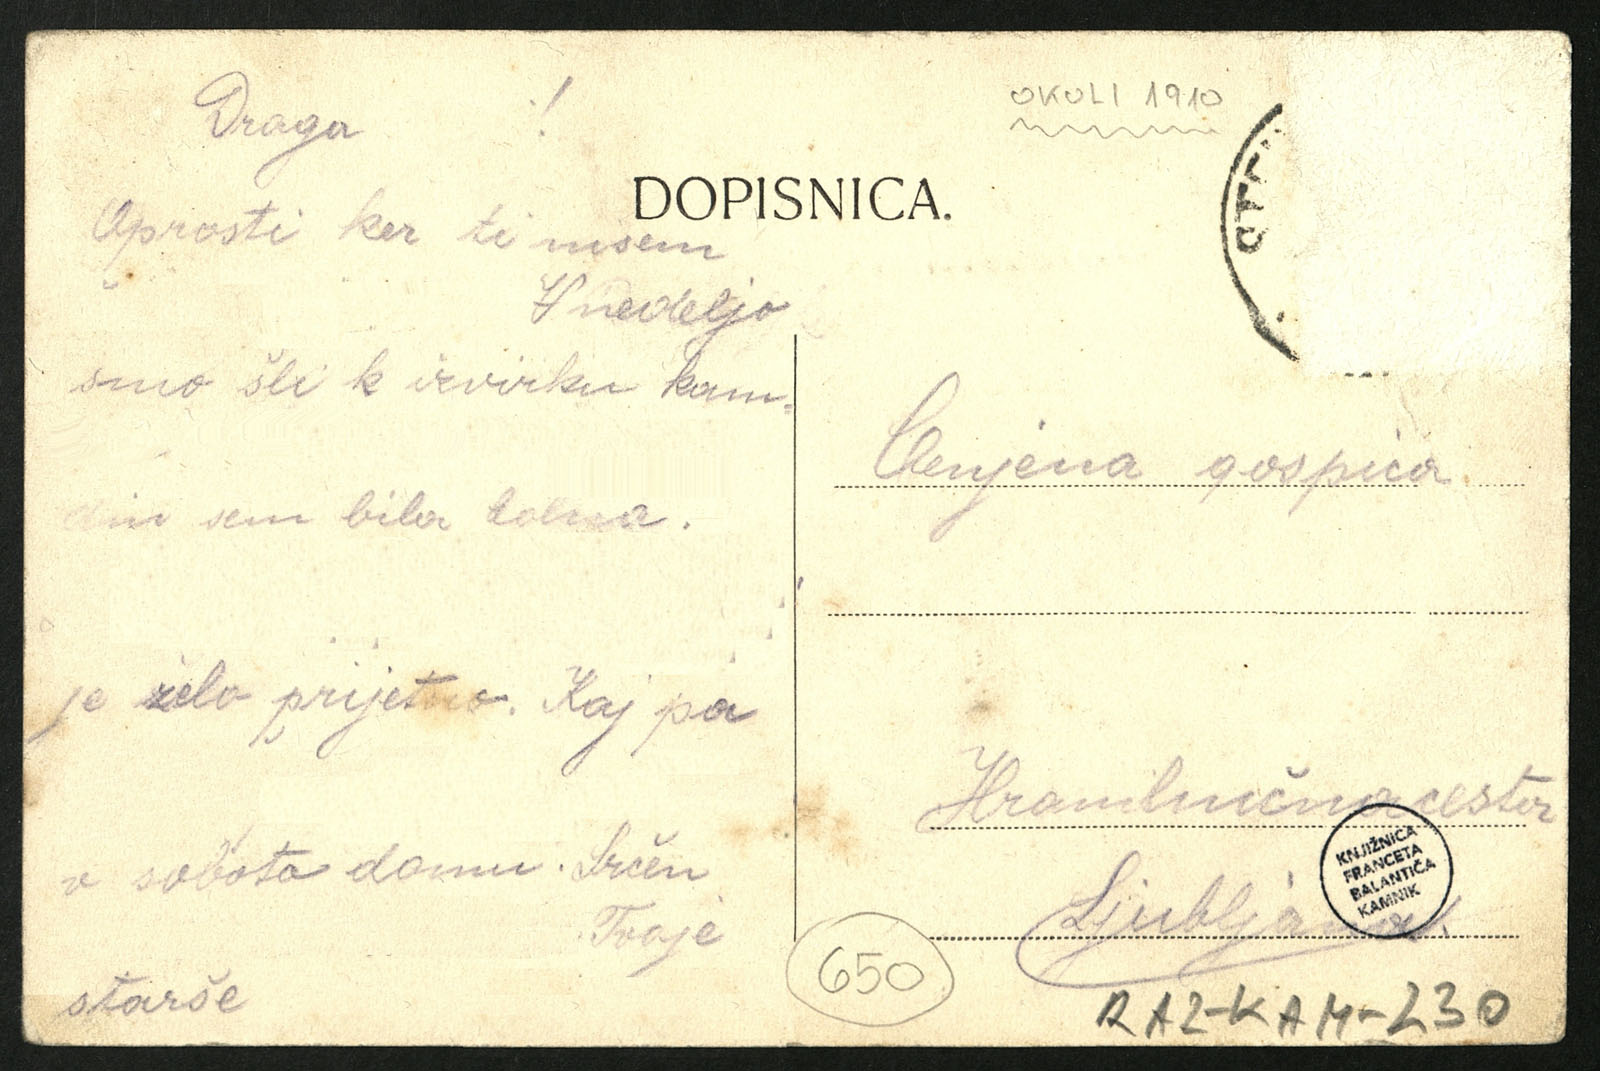 Draga !
Oprosti ker ti nisem
V nedeljo
smo šli k izvirku kam=
din sem bila bolna.
je zelo prijetno. Kaj pa
v soboto domu. Srčen
Tvoje
starše
OKOLI 1910
DOPISNICA.
Cenjena gospica
Hranilnična cesta
Ljubljana
KNJIŽNICA
FRANCETA
BALANTIČA
KAMNIK
650
RAZ-KAM-230